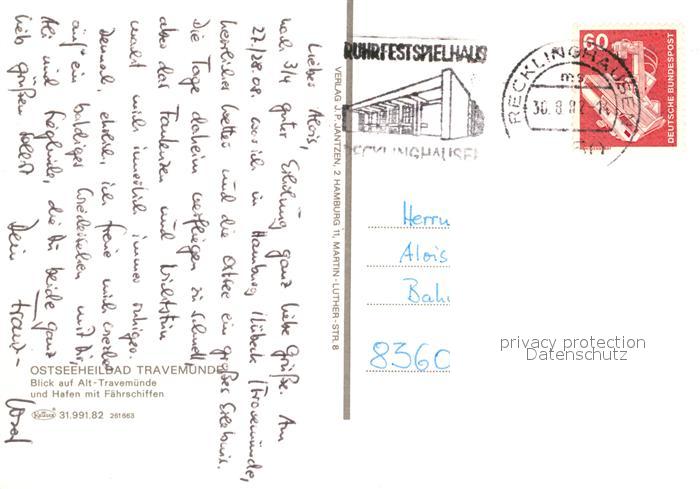 Lieber Alois,
nach 3/4 guter Erholung ganz liebe Grüße. Am
27./28.08. war ich in Hamburg, Lübeck, Travemünde,
herrliches Wetter und die Ostsee ein großes Erlebnis.
Die Tage daheim verfliegen zu schnell
aber das und
macht mich innerlich immer ruhiger.
ich freue mich
auf ein baldiges Wiedersehen mit Dir,
Ali und Sieglinde, die Du beide ganz
lieb grüßen sollst. Dein Franz-
Josef
OSTSEEHEILBAD TRAVEMÜNDE
Blick auf Alt-Travemünde
und Hafen mit Fährschiffen
Krüger 31.991.82 261663
VERLAG J. P. JANTZEN, 2 HAMBURG 11, MARTIN-LUTHER-STR. 8
RUHRFESTSPIELHAUS
RECKLINGHAUSEN
RECKLINGHAUSEN
30.8.82
60
DEUTSCHE BUNDESPOST
Herrn
Alois
Bah
8360
privacy protection
Datenschutz